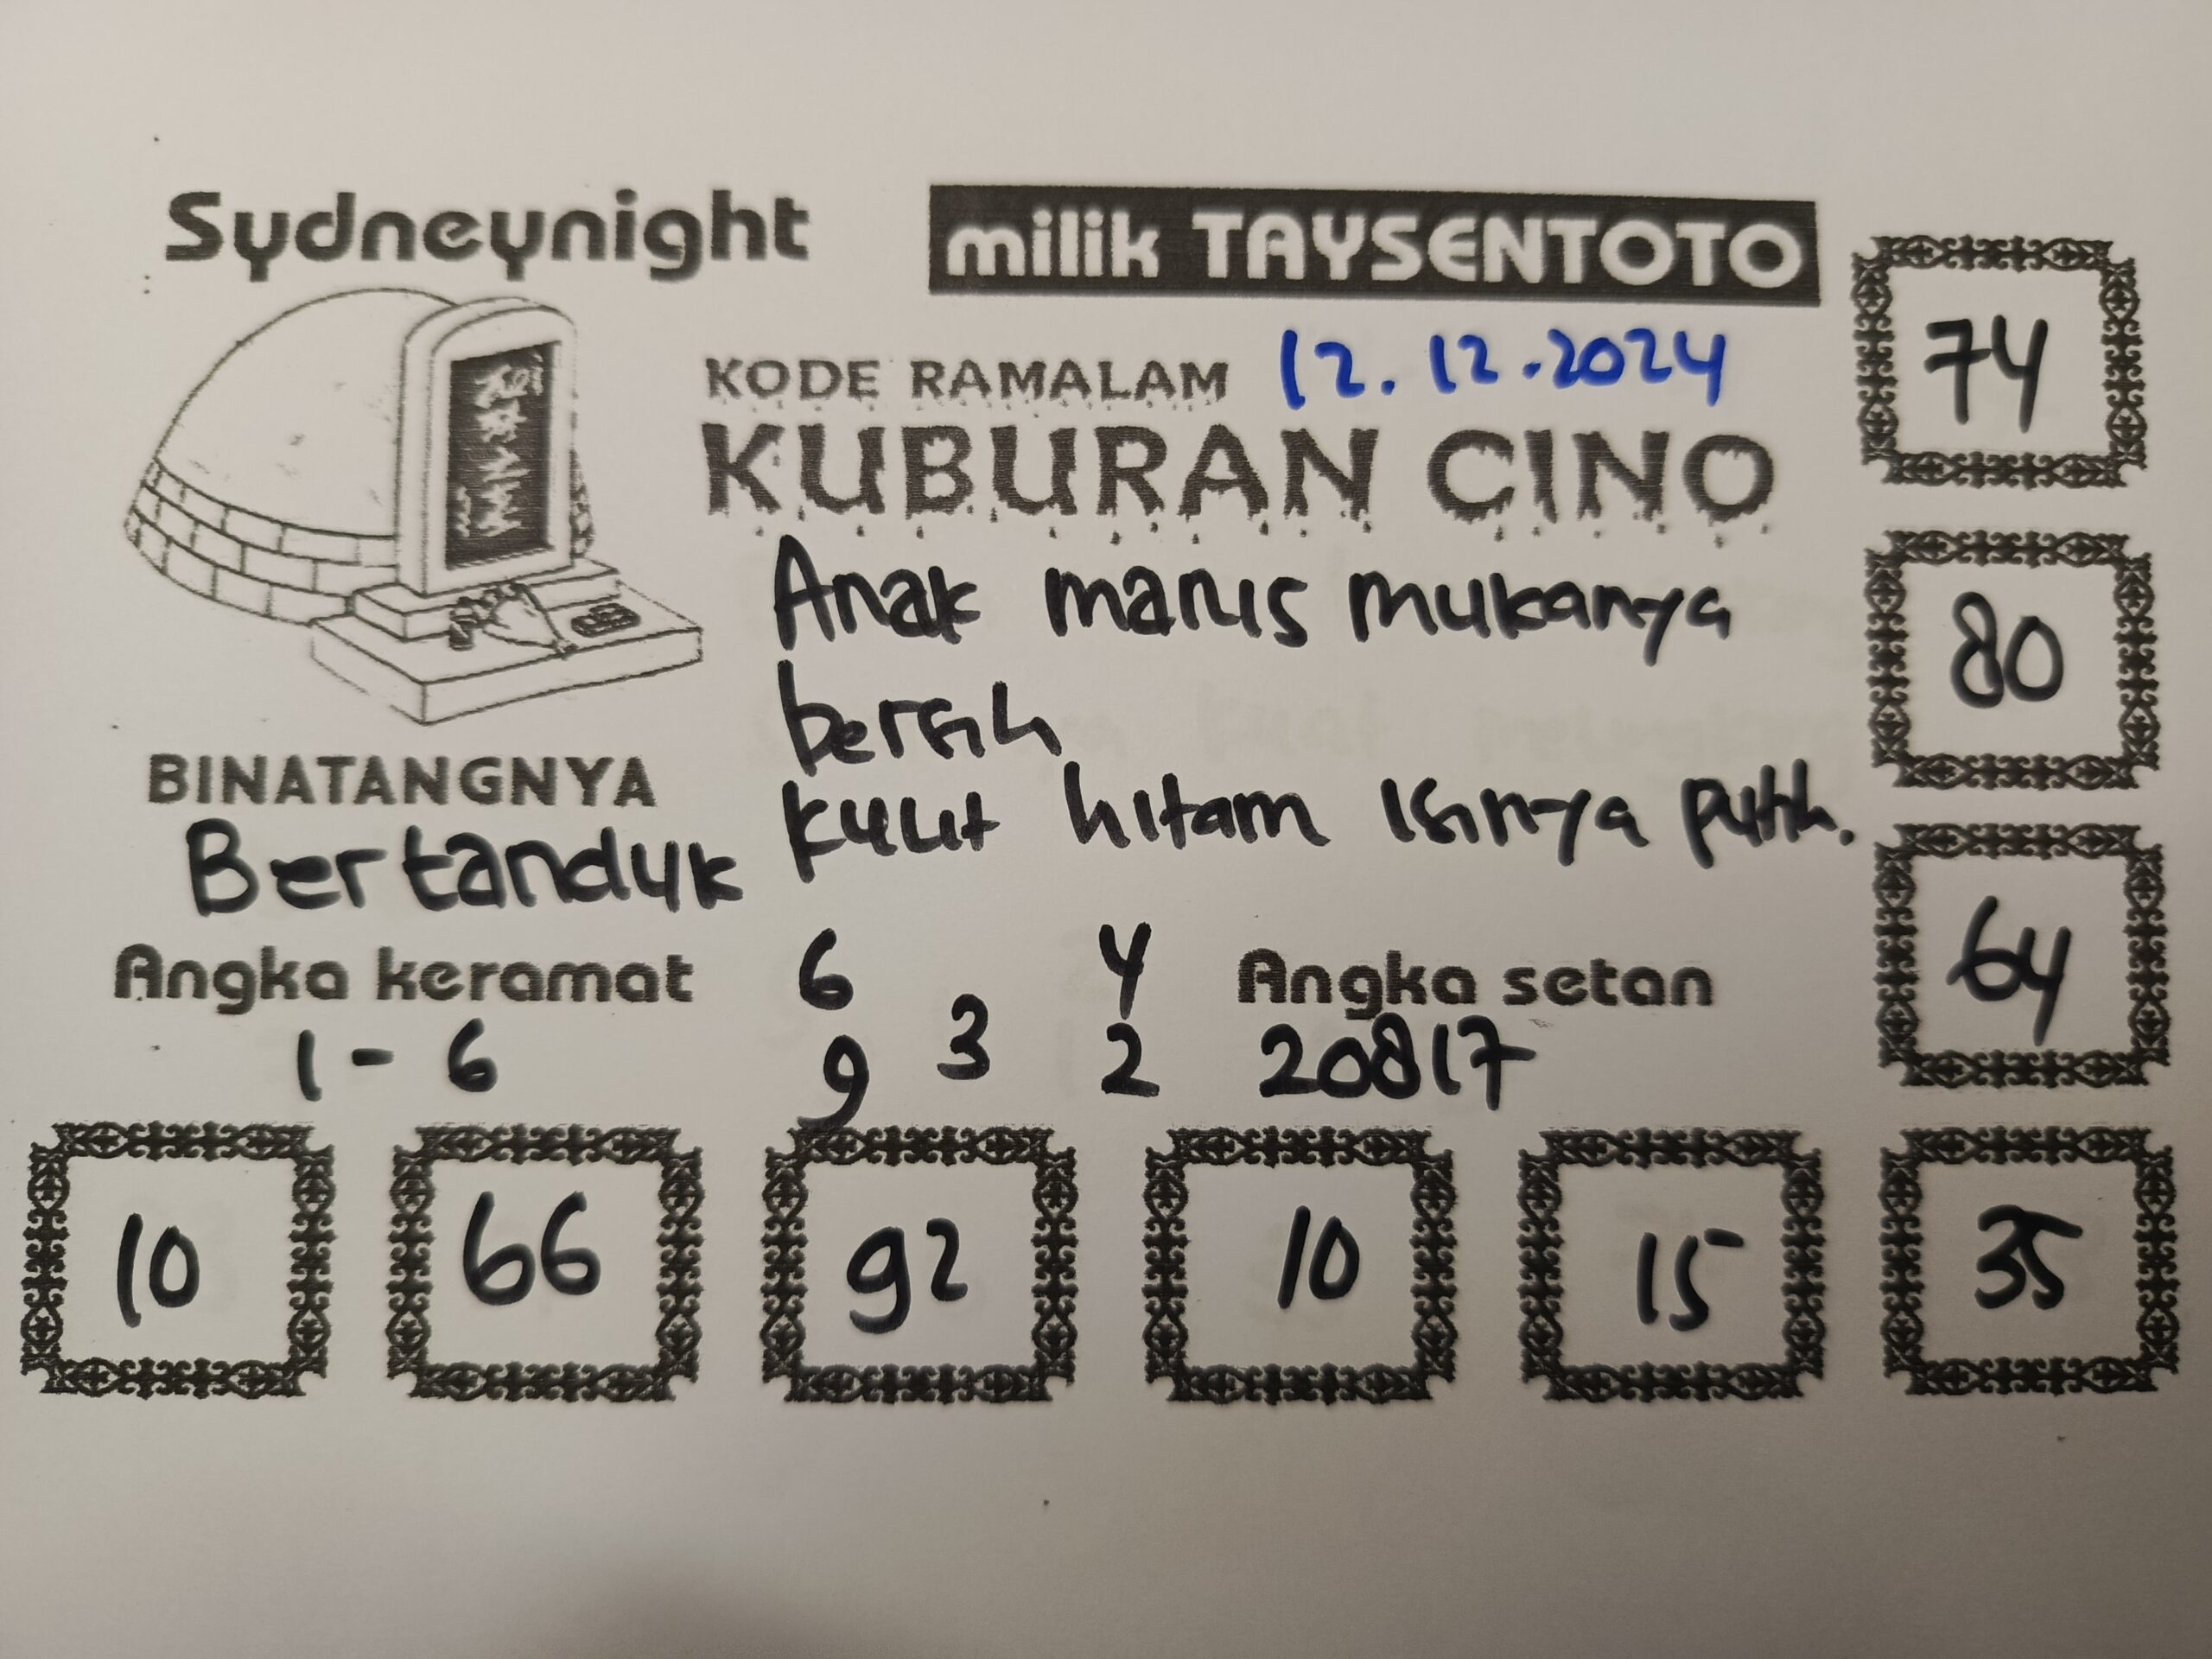 Sydneynight
milik TAYSENTOTO
KODE RAMALAM 12.12.2024
KUBURAN CINO
Anak manis mukanya
bersih
kulit hitam isinya putih.
BINATANGNYA
Bertanduk
Angka keramat
1 - 6
6 4
9 3 2
Angka setan
20817
74
80
64
10 66 92 10 15 35